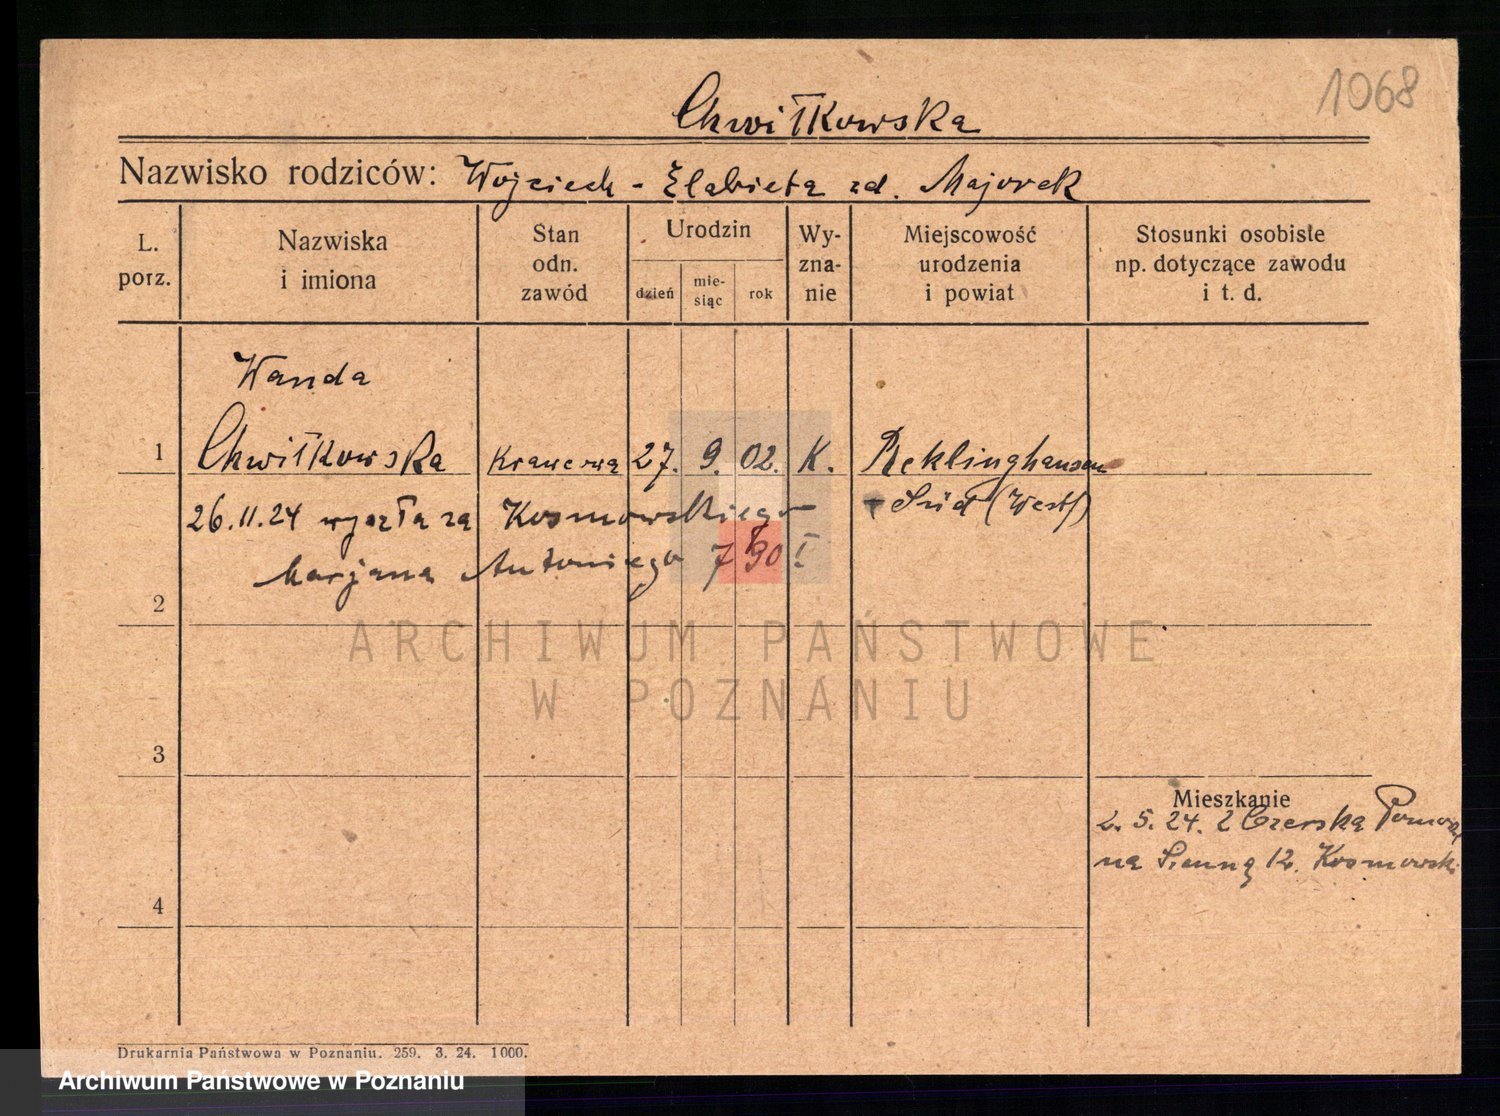 1068
Chwiłkowska
Nazwisko rodziców: Wojciech - Elżbieta zd. Majorek
L. porz.
Nazwiska i imiona
Stan odn. zawód
Urodzin
dzień
mie-
siąc
rok
Wy-
zna-
nie
Miejscowość urodzenia i powiat
Stosunki osobiste np. dotyczące zawodu i t. d.
Wanda
1 Chwiłkowska Krawcowa 27. 9. 02. K. Reklinghausen
26.11.24 wyszła za Kosmowskiego Süd (Westf)
Marjana Antoniego 7 90 I
2
3
4
Mieszkanie
2. 5. 24. z Czerska Pomorz
na Sienną 12. Kosmowski
Drukarnia Państwowa w Poznaniu. 259. 3. 24. 1000.
ARCHIWUM PAŃSTWOWE
W POZNANIU
Archiwum Państwowe w Poznaniu